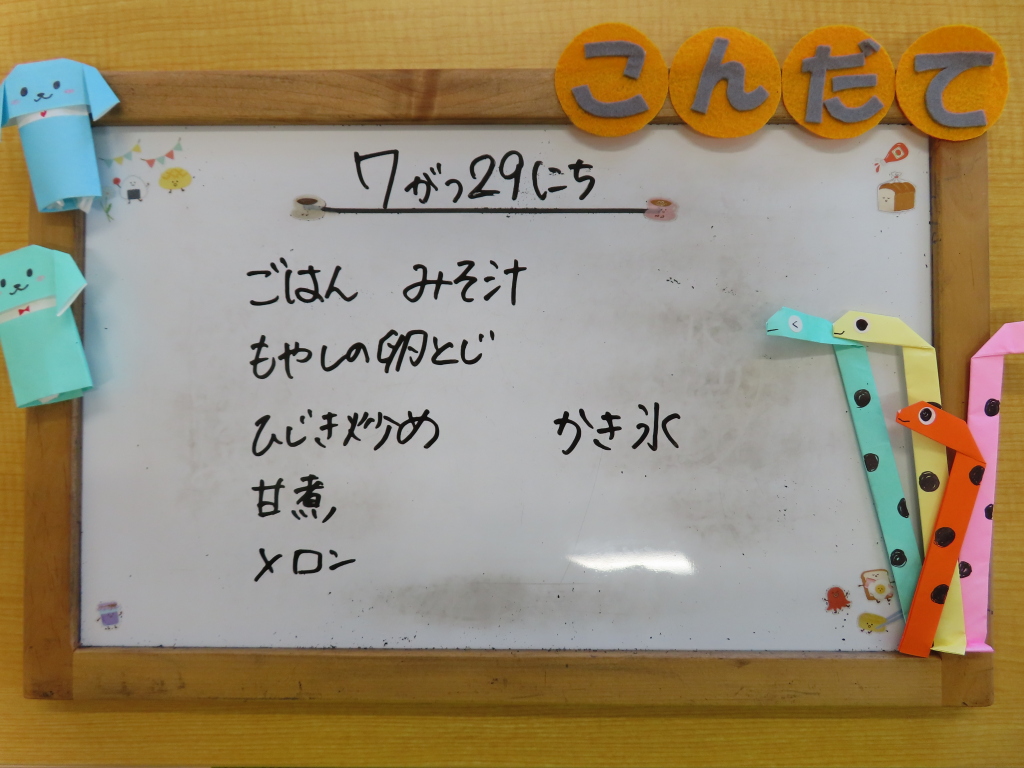 こんだて
7がつ29にち
ごはん みそ汁
もやしの卵とじ
ひじき炒め かき氷
甘煮
メロン